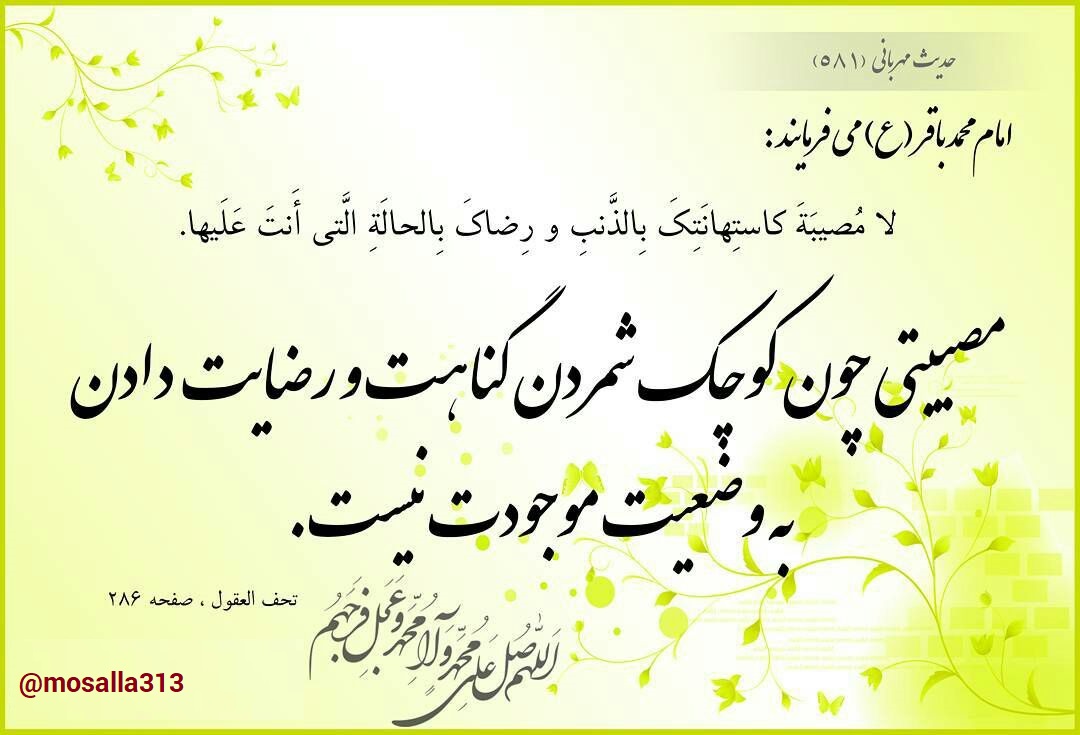 حدیث مهربانی (۵۸۱)
امام محمد باقر (ع) می فرمایند:
لا مُصیبَةَ کاستِهانَتِکَ بِالذَّنبِ و رِضاکَ بِالحالَةِ الَّتی أَنتَ عَلَیها.
مصیبتی چون کوچک شمردن گناهت و رضایت دادن
به وضعیت موجودت نیست.
تحف العقول ، صفحه ۲۸۶
اَللّهُمَّ صَلِّ عَلی مُحَمَّدٍ وَ آلِ مُحَمَّدٍ وَ عَجِّل فَرَجَهُم
@mosalla313